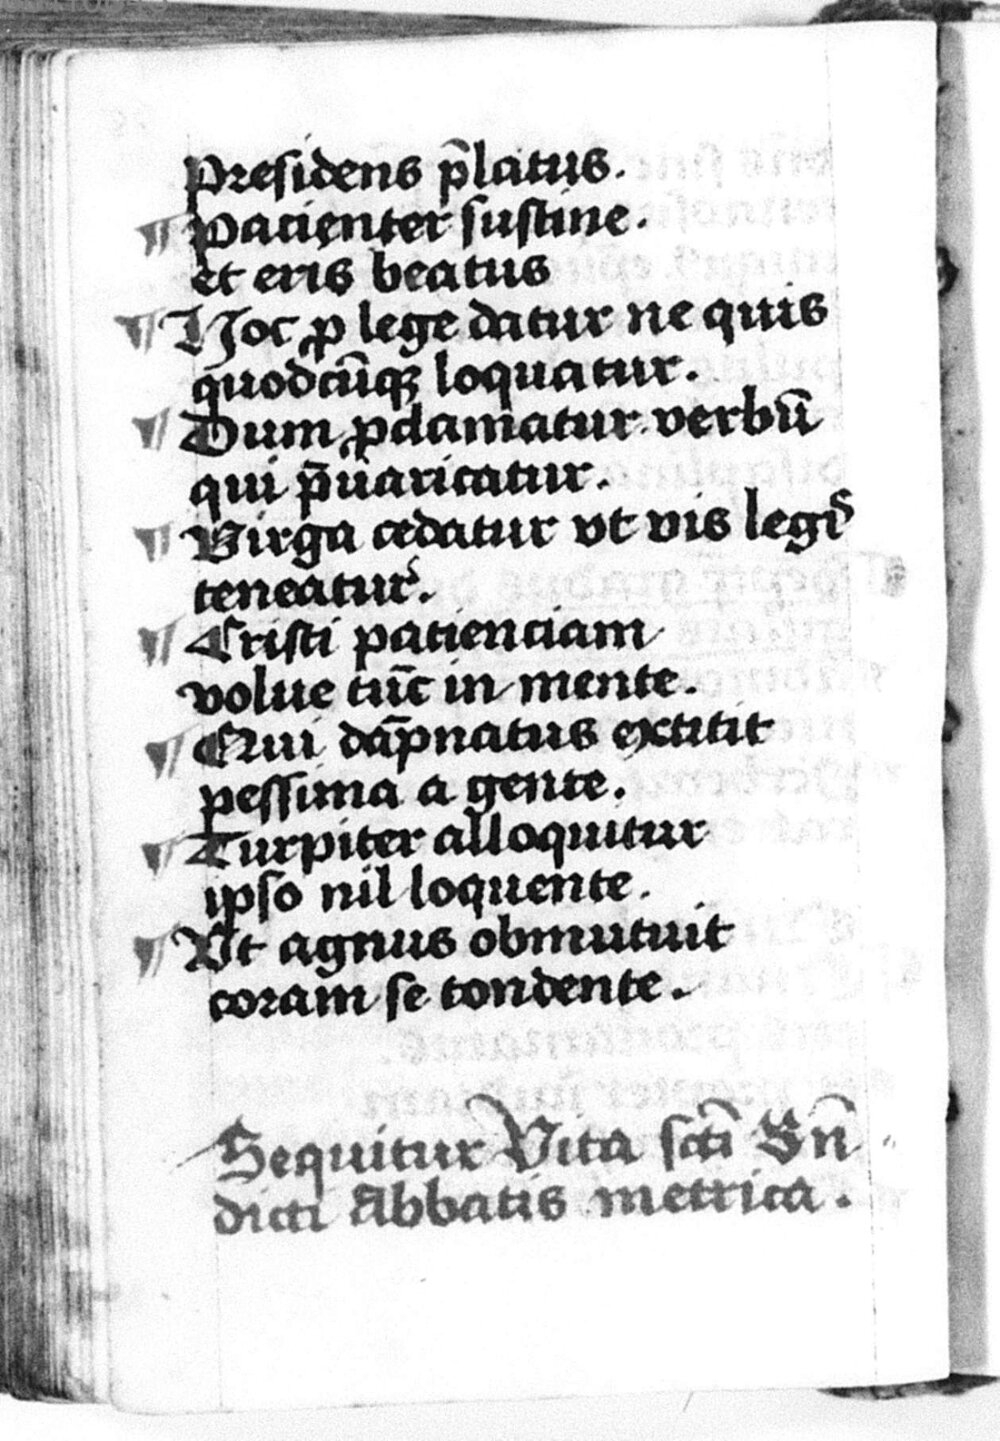 Presidens p̄latus.
¶ Pacienter sustine.
et eris beatus
¶ Hoc ꝓ lege datur ne quis
quodcūqꝫ loquatur.
¶ Dum ꝓclamatur verbū
qui p̄uaricatur.
¶ Virga cedatur vt vis legis
teneatur.
¶ Cristi pacienciam
volue tūc in mente.
¶ Qui dāpnatus extitit
pessima a gente.
¶ Turpiter alloquitur
ipso nil loquente.
¶ Vt agnus obmutuit
coram se tondente.
Sequitur Vita scti Bn̄
dicti Abbatis metrica.